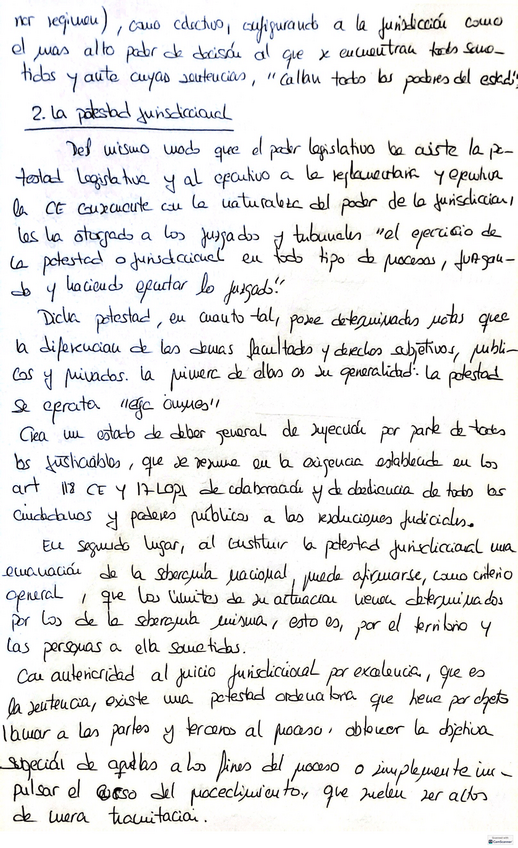 nor regimen), como colectivo, configurando a la Jurisdicción como
el mas alto poder de decisión al que se encuentran todos some-
tidos y ante cuyas sentencias, "callan todos los poderes del estado".
2. La potestad Jurisdiccional
Del mismo modo que el poder legislativo le asiste la po-
testad legislativa y al ejecutivo a la reglamentaria y ejecutiva
la CE consecuente con la naturaleza del poder de la jurisdiccion,
les ha otorgado a los juzgados y tribunales "el ejercicio de
la potestad jurisdiccional en todo tipo de procesos, juzgan-
do y haciendo ejecutar lo juzgado".
Dicha potestad, en cuanto tal, posee determinadas notas que
la diferencian de las demas facultades y derechos subjetivos, publi-
cos y privados. la primera de ellas es su generalidad: la potestad
se ejercita "erga omnes"
Crea un estado de deber general de sujección por parte de todos
los justiciables, que se resume en la exigencia establecida en los
art 118 CE y 17 LOPJ de colaboración y de obediencia de todos los
ciudadanos y poderes públicos a las resoluciones judiciales.
En segundo lugar, al constituir la potestad jurisdiccional una
emanación de la soberania nacional, puede afirmarse, como criterio
general, que los límites de su actuacion vienen determinados
por los de la soberania misma, esto es, por el territorio y
las personas a ella sometidas.
Con anterioridad al juicio jurisdiccional por excelencia, que es
la sentencia, existe una potestad ordenatoria que tiene por objeto
llamar a las partes y terceros al proceso, obtener la objetiva
sujeción de aquellas a los fines del proceso o simplemente im-
pulsar el curso del procedimiento, que suelen ser actos
de mera tramitación.
CamScanner